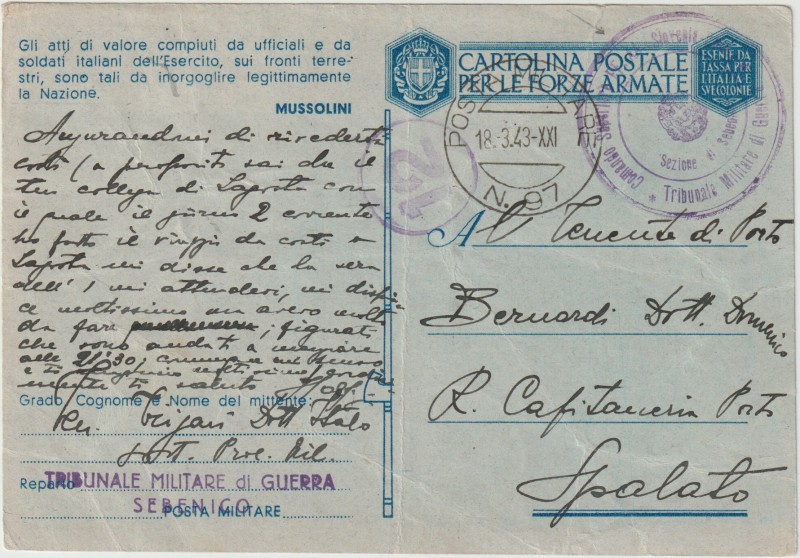 Gli atti di valore compiuti da ufficiali e da
soldati italiani dell'Esercito, sui fronti terre-
stri, sono tali da inorgoglire legittimamente
la Nazione.
MUSSOLINI
CARTOLINA POSTALE
PER LE FORZE ARMATE
ESENTE DA
TASSA PER
L'ITALIA E
SVE COLONIE
POSTA MILITARE
18.3.43-XXI
N. 97
Sezione di Sebenico
Tribunale Militare di Guerra
Comando
Augurandomi di rivederti
costì (a proposito sai che il
tuo collega di Lagosta con
il quale il giorno 2 corrente
ho fatto il viaggio da costì a
Lagosta mi disse che la sera
dell'1 mi attendevi, mi dispia
ce moltissimo ma avevo molto
da fare, figurati
che sono andati a mangiare
alle 21.30;
ti saluto
Grado, Cognome e Nome del mittente:
Dott. Italo
Sott. Proc. Mil.
Reparto
TRIBUNALE MILITARE di GUERRA
SEBENICO
POSTA MILITARE
Al Tenente di Porto
Bernardi Dott. Domenico
R. Capitaneria Porto
Spalato